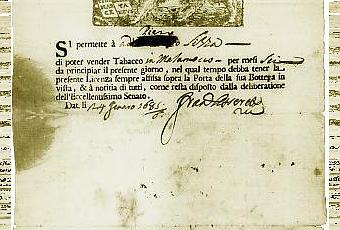 SI permette à
di poter vender Tabacco in Malamocco — per mesi Sei
da principiar il presente giorno, nel qual tempo debba tener la
presente Licenza sempre affissa sopra la Porta della sua Bottega in
vista, & à notitia di tutti, come resta disposto dalla deliberatione
dell'Eccellentissimo Senato.
Dat. li 24 Genaro 1685